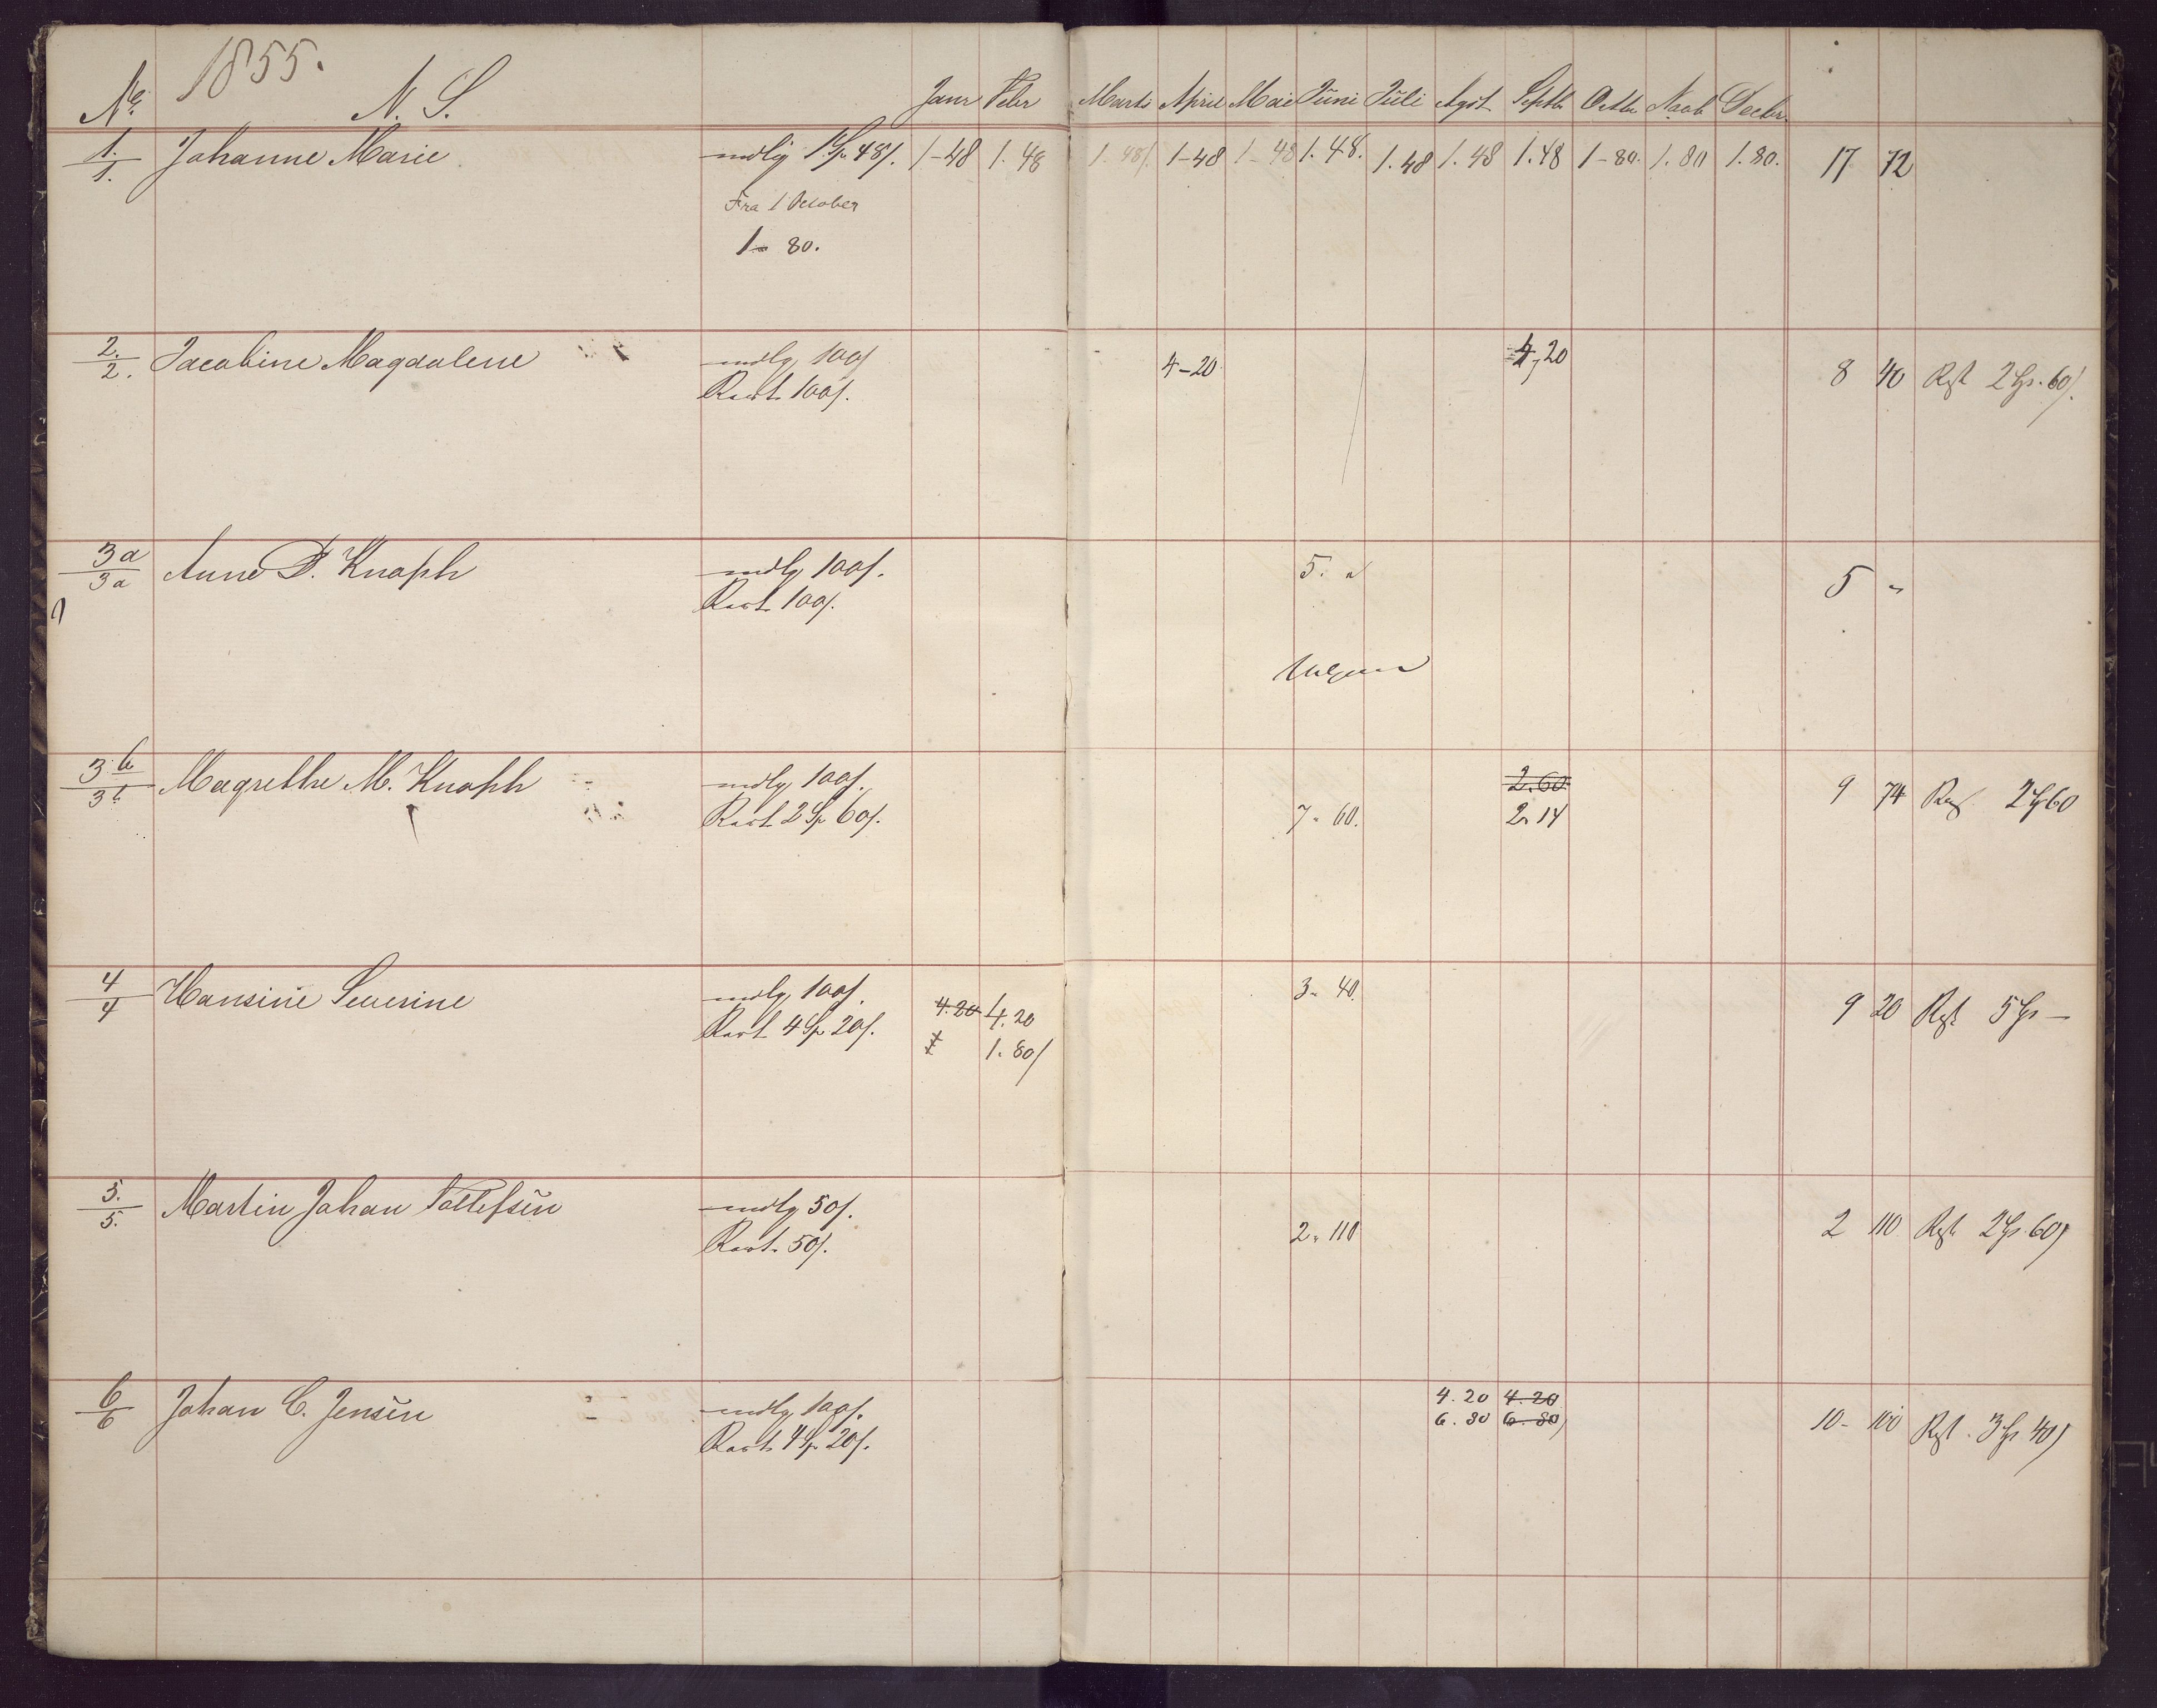 1855.
No. N. S. Janr Febr Marts April Mai Juni Juli Agst Septb Octbr Novb Decbr.
1./1. Johanne Marie mdlig 1 Sp 48 s. 1-48 1. 48 1. 48 1-48 1-48 1. 48. 1. 48 1. 48 1. 48 1-80. 1. 80 1. 80. 17 72
Fra 1 October
1 - 80.
2./2. Jacobine Magdalene mdlg 100 s 4-20 4, 20 8 40 Rest 2 Sp. 60 s.
Rest. 100 s.
3a/3a Anne D. Knoph mdlg 100 s. 5. " 5 "
Rest. 100 s.
3b/3b Magrethe M. Knoph mdlg 100 s. 2. 60. 9 74 Rest 2 Sp 60
Rest. 2 Sp 60 s. 7 " 60. 2 " 14
4/4 Hansine Severine mdlg 100 s. 4. 20 4. 20 3 " 40. 9 20 Rest 5 Sp -
Rest. 4 Sp. 20 s. 1. 80 s
5./5. Martin Johan Tollefsen mdlg 50 s. 2 " 110 2 110 Rest 2 Sp. 60 s
Rest. 50 s.
6/6 Johan C. Jensen mdlg 100 s. 4. 20 4. 20 10 - 100 Rest. 3 Sp 40 s
Rest. 4 Sp. 20 s. 6. 80 6. 80